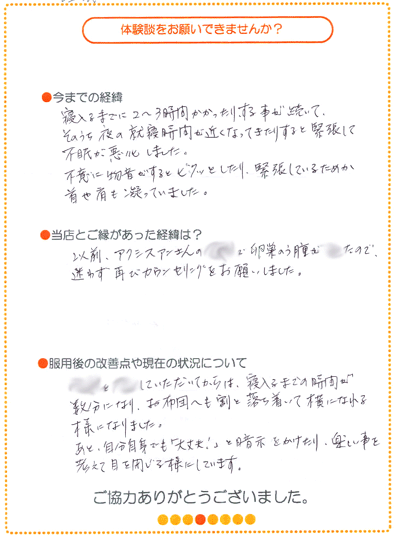 体験談をお願いできませんか？
●今までの経緯
寝入るまでに2〜3時間かかったりする事が続いて、
そのうち夜の就寝時間が近くなってきたりすると緊張して
不眠が悪化しました。
不意に物音がするとビクッとしたり、緊張しているためか
首や肩も凝っていました。
●当店とご縁があった経緯は？
以前、アクシスアンさんの で卵巣のう腫が たので、
迷わず再びカウンセリングをお願いしました。
●服用後の改善点や現在の状況について
を していただいてからは、寝入るまでの時間が
数分になり、お布団へも割と落ち着いて横になれる
様になりました。
あと、自分自身でも「大丈夫！」と暗示をかけたり、楽しい事を
考えて目を閉じる様にしています。
ご協力ありがとうございました。